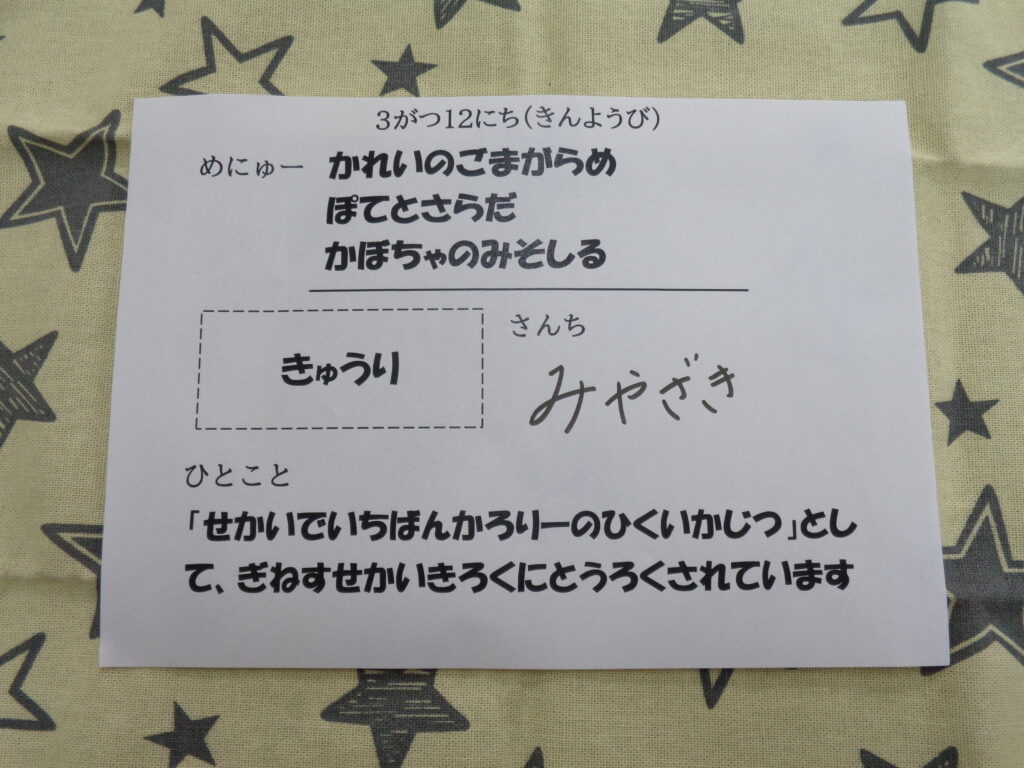 3がつ12にち(きんようび)
めにゅー かれいのごまがらめ
ぽてとさらだ
かぼちゃのみそしる
きゅうり
さんち
みやざき
ひとこと
「せかいでいちばんかろりーのひくいかじつ」とし
て、ぎねすせかいきろくにとうろくされています